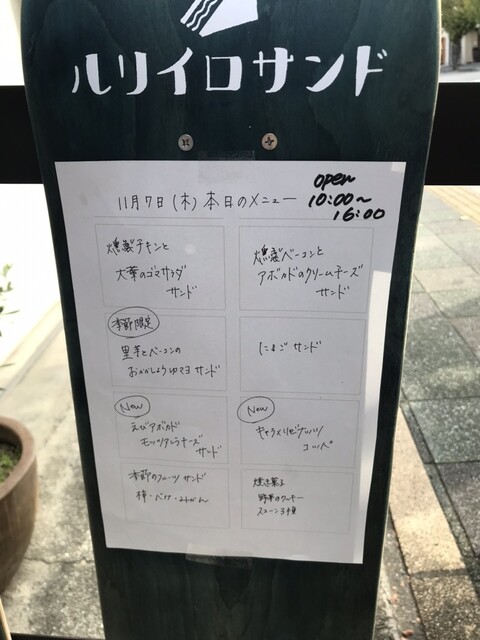 ルリイロサンド
11月7日(木)本日のメニュー
open
10:00~
16:00
燻製チキンと
大葉のゴマサラダ
サンド
燻製ベーコンと
アボカドのクリームチーズ
サンド
季節限定
里芋とベーコンの
おかかしょうゆマヨ サンド
たまご サンド
New
えびアボカド
モッツァレラチーズ
サンド
New
キャラメルピーナッツ
コッペ
季節のフルーツ サンド
柿・バナナ・みかん
焼き菓子
野菜のクッキー
スコーン3種